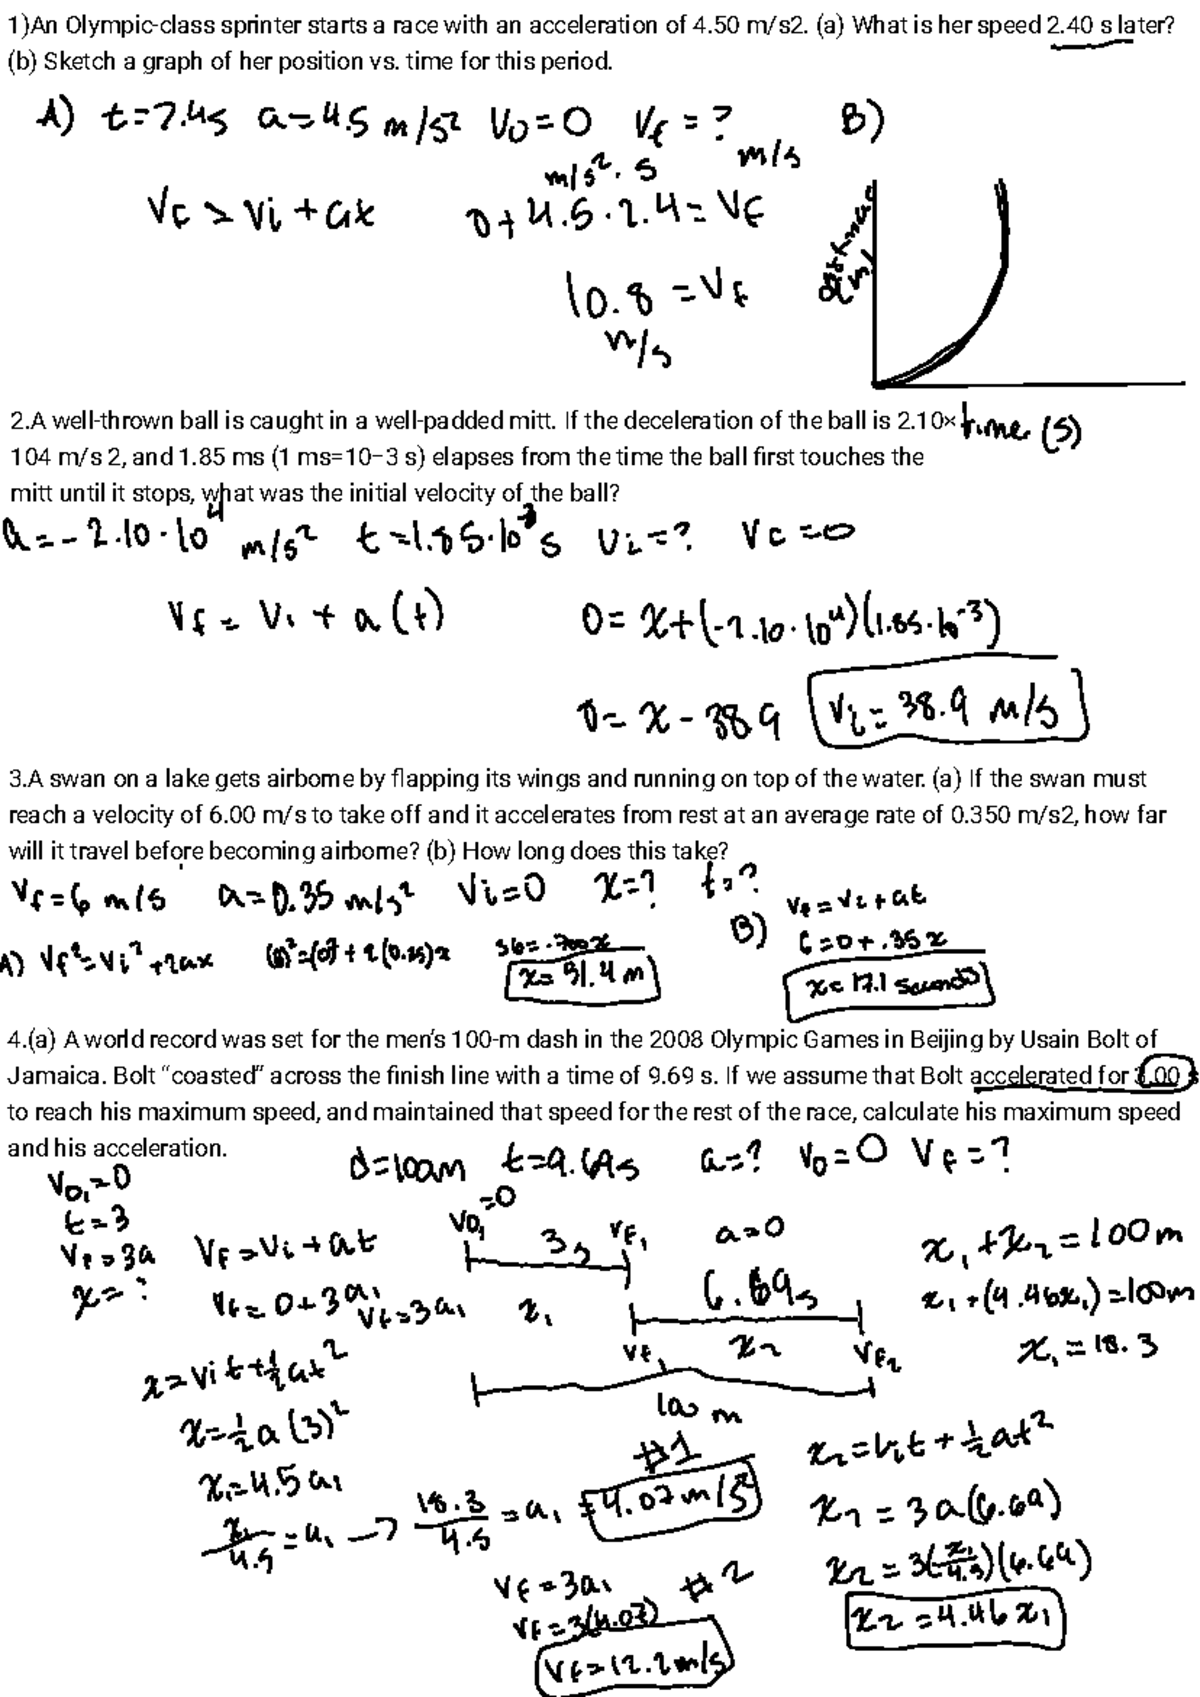 1)An Olympic-class sprinter starts a race with an acceleration of 4.50 m/s2. (a) What is her speed 2.40 s later?
(b) Sketch a graph of her position vs. time for this period.
A) t=2.4s a=4.5 m/s² V0=0 Vf=? B)
m/s
m/s².s
Vf = Vi + at 0+4.5·2.4=Vf
10.8 = Vf
m/s
2.A well-thrown ball is caught in a well-padded mitt. If the deceleration of the ball is 2.10× time (s)
104 m/s 2, and 1.85 ms (1 ms=10−3 s) elapses from the time the ball first touches the
mitt until it stops, what was the initial velocity of the ball?
a=-2.10·10⁴ m/s² t=1.85·10⁻³ s Vi=? Vf=0
Vf = Vi + a(t) 0= x+(-2.10·10⁴)(1.85·10⁻³)
0= x - 38.9 Vi= 38.9 m/s
3.A swan on a lake gets airborne by flapping its wings and running on top of the water. (a) If the swan must
reach a velocity of 6.00 m/s to take off and it accelerates from rest at an average rate of 0.350 m/s2, how far
will it travel before becoming airborne? (b) How long does this take?
Vf=6 m/s a=0.35 m/s² Vi=0 x=? t=?
B) Vf=Vi+at
A) Vf²=Vi²+2ax (6)²=(0)²+2(0.35)x 36=.700x 6=0+.35x
x=51.4 m x=17.1 seconds
4.(a) A world record was set for the men's 100-m dash in the 2008 Olympic Games in Beijing by Usain Bolt of
Jamaica. Bolt “coasted” across the finish line with a time of 9.69 s. If we assume that Bolt accelerated for 3.00 s
to reach his maximum speed, and maintained that speed for the rest of the race, calculate his maximum speed
and his acceleration.
d=100m t=9.69s a=? V0=0 Vf=?
V0₁=0
t=3
Vf=3a Vf=Vi+at V0₁=0 3s Vf₁ a=0 x₁+x₂=100m
x=? Vf=0+3a₁ Vf=3a₁ x₁ 6.69s x₁+(4.46x₁)=100m
Vf₁ x₂ Vf₂ x₁=18.3
x=Vit+½at²
100 m
x=½a(3)² #1 x₂=Vit+½at²
x₁=4.5a₁ x₂=3a(6.69)
x₁/4.5=a₁ → 18.3/4.5=a₁=4.07m/s²
x₂=3(x₁/4.5)(6.69)
Vf=3a₁ #2
Vf=3(4.07) x₂=4.46x₁
Vf=12.2m/s